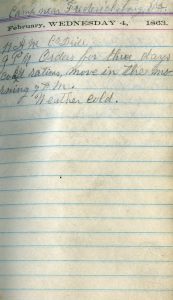 Camp near Fredericksburg Va.
February, WEDNESDAY 4, 1863.
A.M. Drill.
P.M. Orders for three days
cooked rations, move in the mo-
rning
Weather cold.